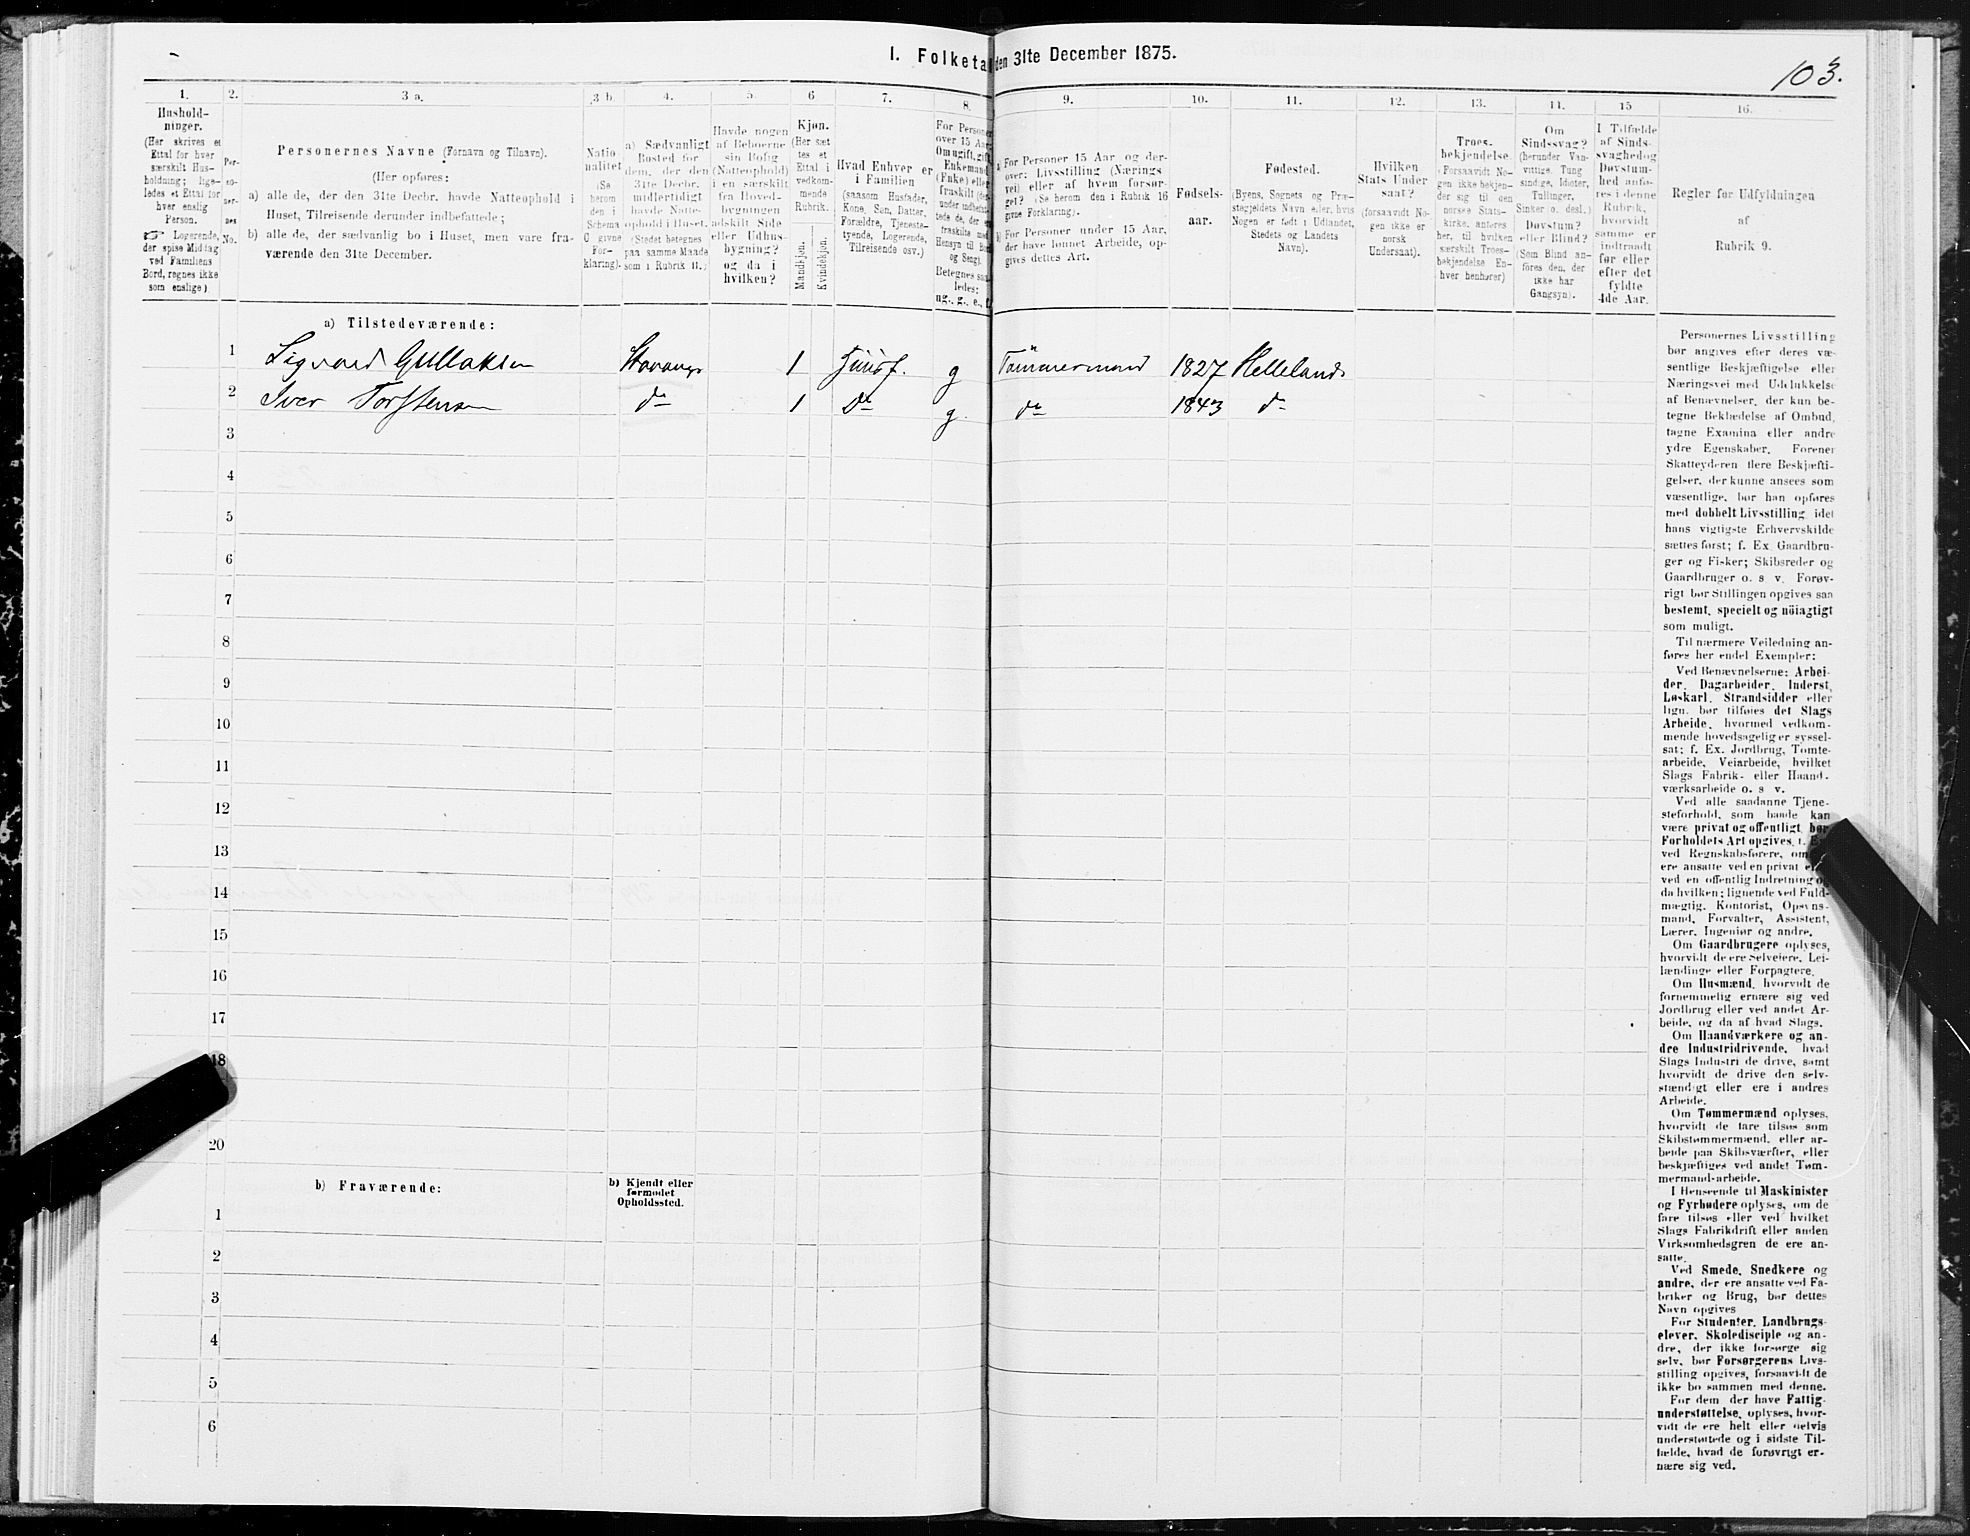 I. Folketa den 31te December 1875.
103.
1. 2. 3 a. 3 b. 4. 5. 6 7. 8. 9. 10. 11. 12. 13. 14. 15 16.
Hushold-
ninger.
(Her skrives et
Ettal for hver
særskilt Hus-
holdning; lige-
ledes et Ettal for
hver enslig
Person.
☞ Logerende,
der spise Middag
ved Familiens
Bord, regnes ikke
som enslige).
Per-
so-
ner-
nes
No.
Personernes Navne (Fornavn og Tilnavn).
(Her opføres:
a) alle de, der den 31te Decbr. havde Natteophold i
Huset, Tilreisende derunder indbefattede;
b) alle de, der sædvanlig bo i Huset, men vare fra-
værende den 31te December.
Natio
nalitet
(Se
herom
den i
Schema
O givne
For-
klaring).
a) Sædvanligt
Bosted for
dem, der den
31te Decbr.
midlertidigt
havde Natte-
ophold i Huset.
(Stedet betegnes
paa samme Maade
som i Rubrik 11.)
Havde nogen
af Beboerne
sin Bolig
(Natteophold)
i en særskilt
fra Hoved-
bygningen
adskilt Side
eller Udhus-
bygning?
og da i
hvilken?
Kjøn.
(Her sæt
tes et
Ettal i
vedkom-
mende
Rubrik.
Mandkjøn.
Kvindekjøn.
Hvad Enhver er
i Familien
(saasom Husfader,
Kone, Søn, Datter,
Forældre, Tjeneste-
tyende, Logerende,
Tilreisende osv.)
For Person
over 15 Aar
Om ugift, gift
Enkemand
(Enke) elle
fraskilt
under indbefat
tede de, der e
fraskilte med
Hensyn til Bo
og Seng).
Betegnes saa
ledes:
ug., g., e., f.
a) For Personer 15 Aar og der-
over: Livsstilling (Nærings
vei) eller af hvem forsør-
get? (Se herom den i Rubrik 16
givne Forklaring).
b) For Personer under 15 Aar,
der have lønnet Arbeide, op-
gives dettes Art.
Fødsels-
aar.
Fødested.
(Byens, Sognets og Præ-
stegjeldets Navn eller, hvis
Nogen er født i Udlandet,
Stedets og Landets
Navn).
Hvilken
Stats Under
saat?
(forsaavidt No-
gen ikke er
norsk
Undersaat).
Troes-
bekjendelse.
(Forsaavidt No-
gen ikke bekjen-
der sig til den
norske Stats-
kirke, anføres
her, til hvilken
særskilt Troes-
bekjendelse En-
hver henhører)
Om
Sindssvag?
(herunder Van-
vittige, Tung
sindige, Idioter,
Tullinger,
Sinker o. desl.)
Døvstum?
eller Blind?
(Som Blind an-
føres den, der
ikke har
Gangsyn).
I Tilfælde
af Sinds-
svaghed og
Døvstum-
hed anfø-
res i denne
Rubrik,
hvorvidt
samme er
indtraadt
før eller
efter det
fyldte
4de Aar.
Regler for Udfyldningen
af
Rubrik 9.
a) Tilstedeværende:
1 Sigvard Gullaksen Stavanger 1 Huusf. g Tömmermand 1827 Helleland
2 Iver Torstensen do 1 Do g. do 1843 do
3
4
5
6
7
8
9
10
11
12
13
14
15
16
17
18
20
b) Fraværende:
b) Kjendt eller
formodet
Opholdssted.
1
2
3
4
5
6
Personernes Livsstilling
bør angives efter deres væ-
sentlige Beskjæftigelse eller
Næringsvei med Udelukkelse
af Benævnelser, der kun be-
tegne Beklædelse af Ombud,
tagne Examina eller andre
ydre Egenskaber. Forener
Skatteyderen flere Beskjæfti-
gelser, der kunne ansees som
væsentlige, bør han opføres
med dobbelt Livsstilling, idet
hans vigtigste Erhvervskilde
sættes først; f. Ex. Gaardbru-
ger og Fisker; Skibsreder og
Gaardbruger o. s v. Forøv-
rigt bør Stillingen opgives saa
bestemt, specielt og nöiagtigt
som muligt.
Til nærmere Veiledning an-
føres her endel Exempler:
Ved Benævnelserne: Arbei-
der, Dagarbeider, Inderst,
Løskarl, Strandsidder eller
lign. bør tilføies det Slags
Arbeide, hvormed vedkom-
mende hovedsagelig er syssel-
sat; f. Ex. Jordbrug, Tomte-
arbeide, Veiarbeide, hvilket
Slags Fabrik- eller Haand-
værksarbeide o. s v.
Ved alle saadanne Tjene-
steforhold, som baade kan
være privat og offentligt, bør
Forholdets Art opgives, f. E
ved Regnskabsførere, om
ere ansatte ved en privat e
ved en offentlig Indretning o
da hvilken; lignende ved Fuld-
mægtig, Kontorist, Opsyns-
mand, Forvalter, Assistent,
Lærer, Ingeniør og andre.
Om Gaardbrugere oplyses,
hvorvidt de ere Selveiere, Lei-
lændinge eller Forpagtere.
Om Husmænd, hvorvidt de
fornemmelig ernære sig ved
Jordbrug eller ved andet Ar-
beide, og da af hvad Slags.
Om Haandværkere og an-
dre Industridrivende, hvad
Slags Industri de drive, samt
hvorvidt de drive den selv-
stændigt eller ere i andres
Arbeide.
Om Tømmermænd oplyses,
hvorvidt de fare tilsøs som
Skibstømmermænd, eller ar-
beide paa Skibsværfter, eller
beskjæftiges ved andet Tøm-
mermandsarbeide.
I Henseende til Maskinister
og Fyrbødere oplyses, om de
fare tilsøs eller ved hvilket
Slags Fabrikdrift eller anden
Virksomhedsgren de ere an-
satte.
Ved Smede, Snedkere og
andre, der ere ansatte ved Fa-
briker og Brug, bør dettes
Navn opgives
For Studenter, Landbrugs-
elever, Skoledisciple og an-
dre, der ikke forsørge sig
selv, bør Forsørgerens Livs-
stilling opgives, forsaavidt de
ikke bo sammen med denne.
For dem der have Fattig-
understøttelse, oplyses, hvor-
vidt de ere helt eller delvis
understøttede og i sidste Til-
fælde, hvad de forøvrigt er-
nære sig ved.